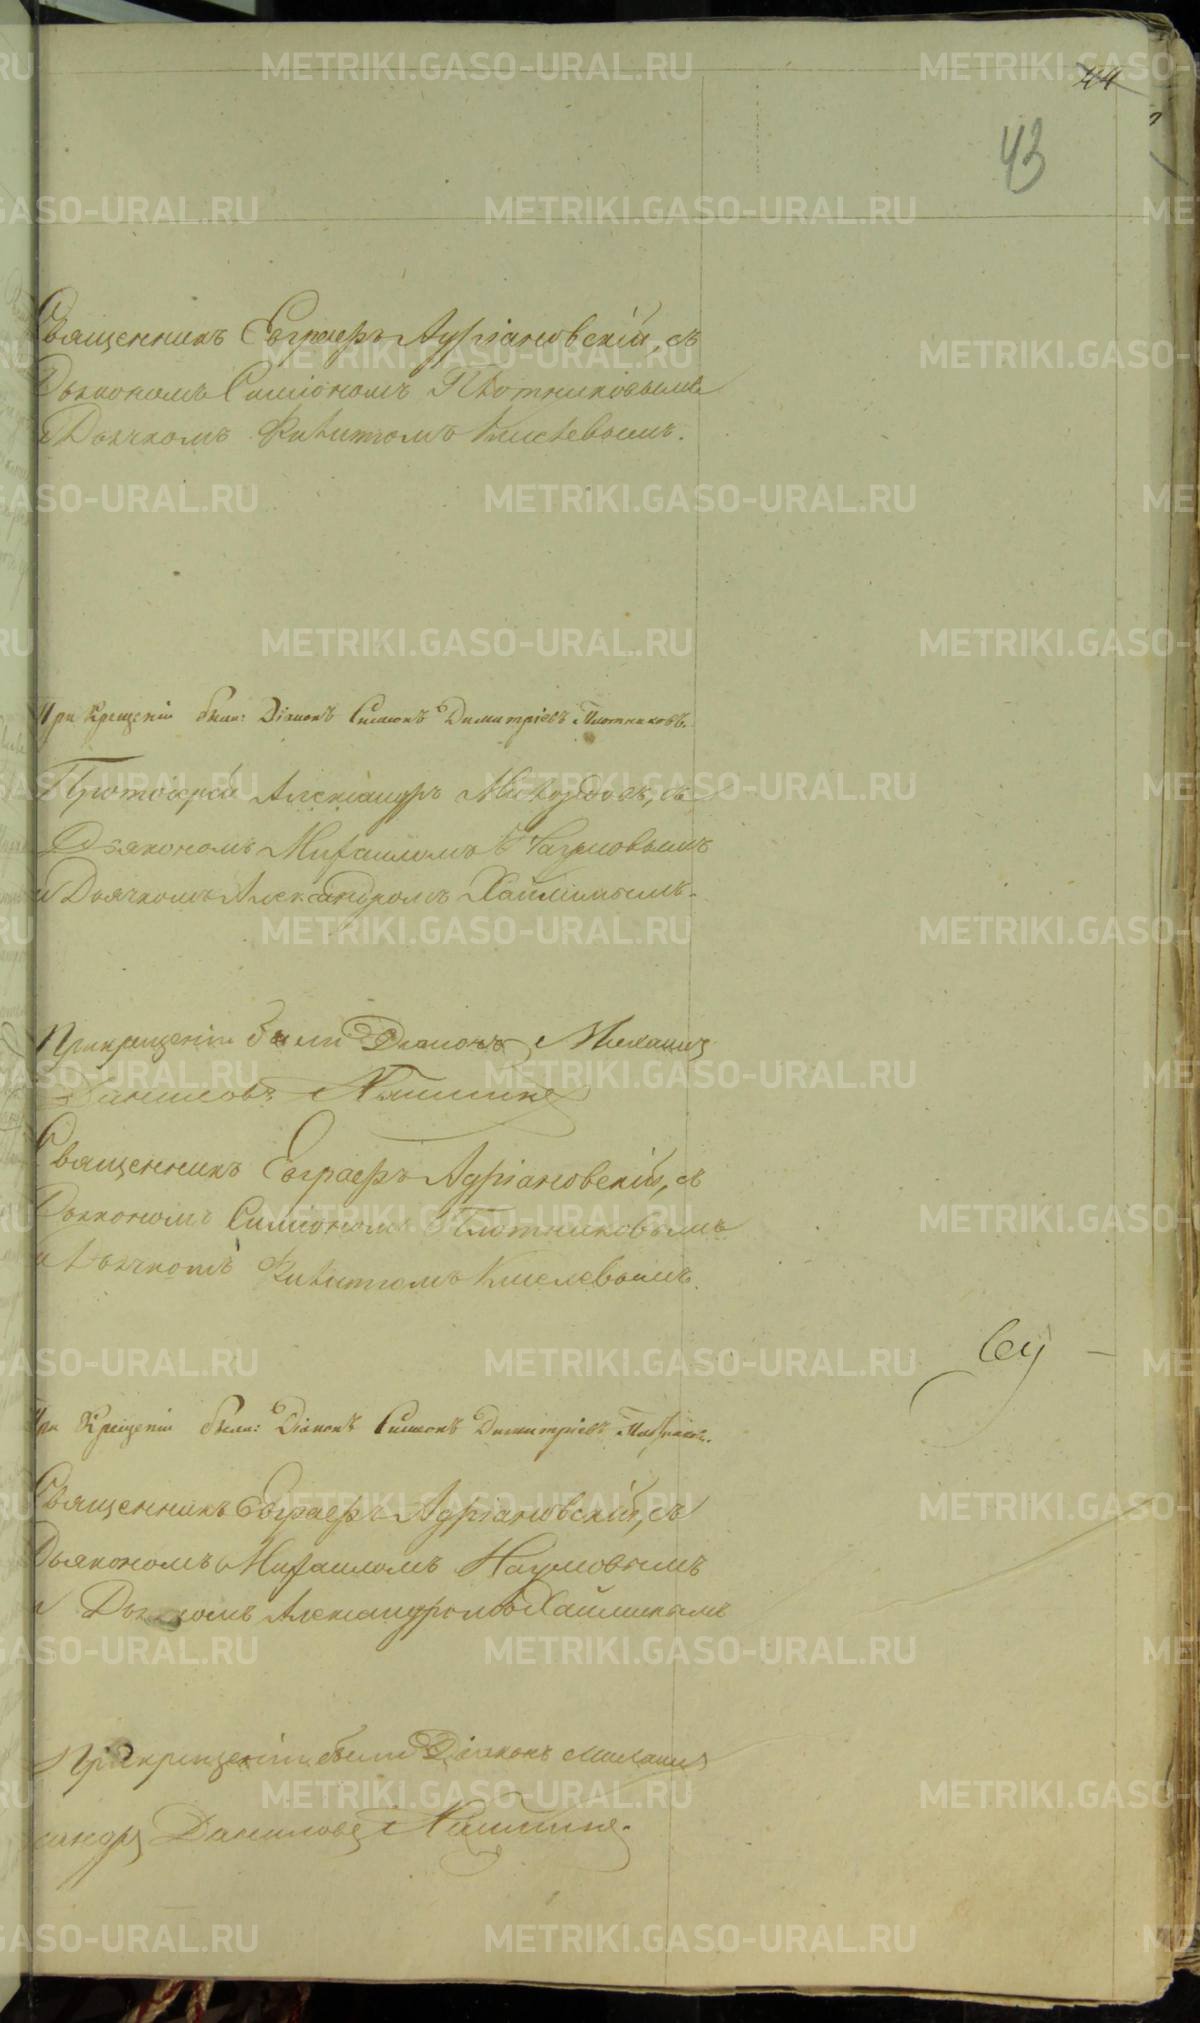 44
43
Священникъ Евграфъ Адріановскій, съ
Дьякономъ Симіономъ Плотниковымъ
и Дьячкомъ Филитомъ Киселевымъ.
При Крещеніи были: Діаконъ Симеонъ Димитріевъ Плотниковъ.
Протоіерей Александръ, съ
Дьякономъ Михаиломъ Наумовымъ
и Дьячкомъ Александромъ
При крещеніи были Діаконъ Михаилъ
Священникъ Евграфъ Адріановскій, съ
Дьякономъ Симіономъ Плотниковымъ
и Дьячкомъ Филитомъ Киселевымъ.
При Крещеніи были: Діаконъ Симеонъ Димитріевъ Плотниковъ.
Священникъ Евграфъ Адріановскій, съ
Дьякономъ Михаиломъ Наумовымъ
и Дьячкомъ Александромъ
При крещеніи были Діаконъ Михаилъ
METRIKI.GASO-URAL.RU